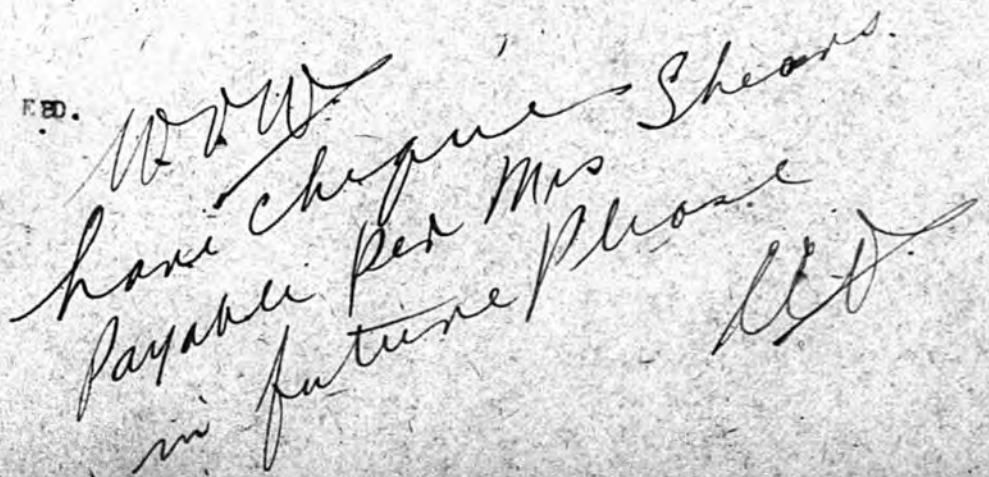 EBD.
W.V.W.
have cheque
Payable Per Mrs Shears.
in future Please